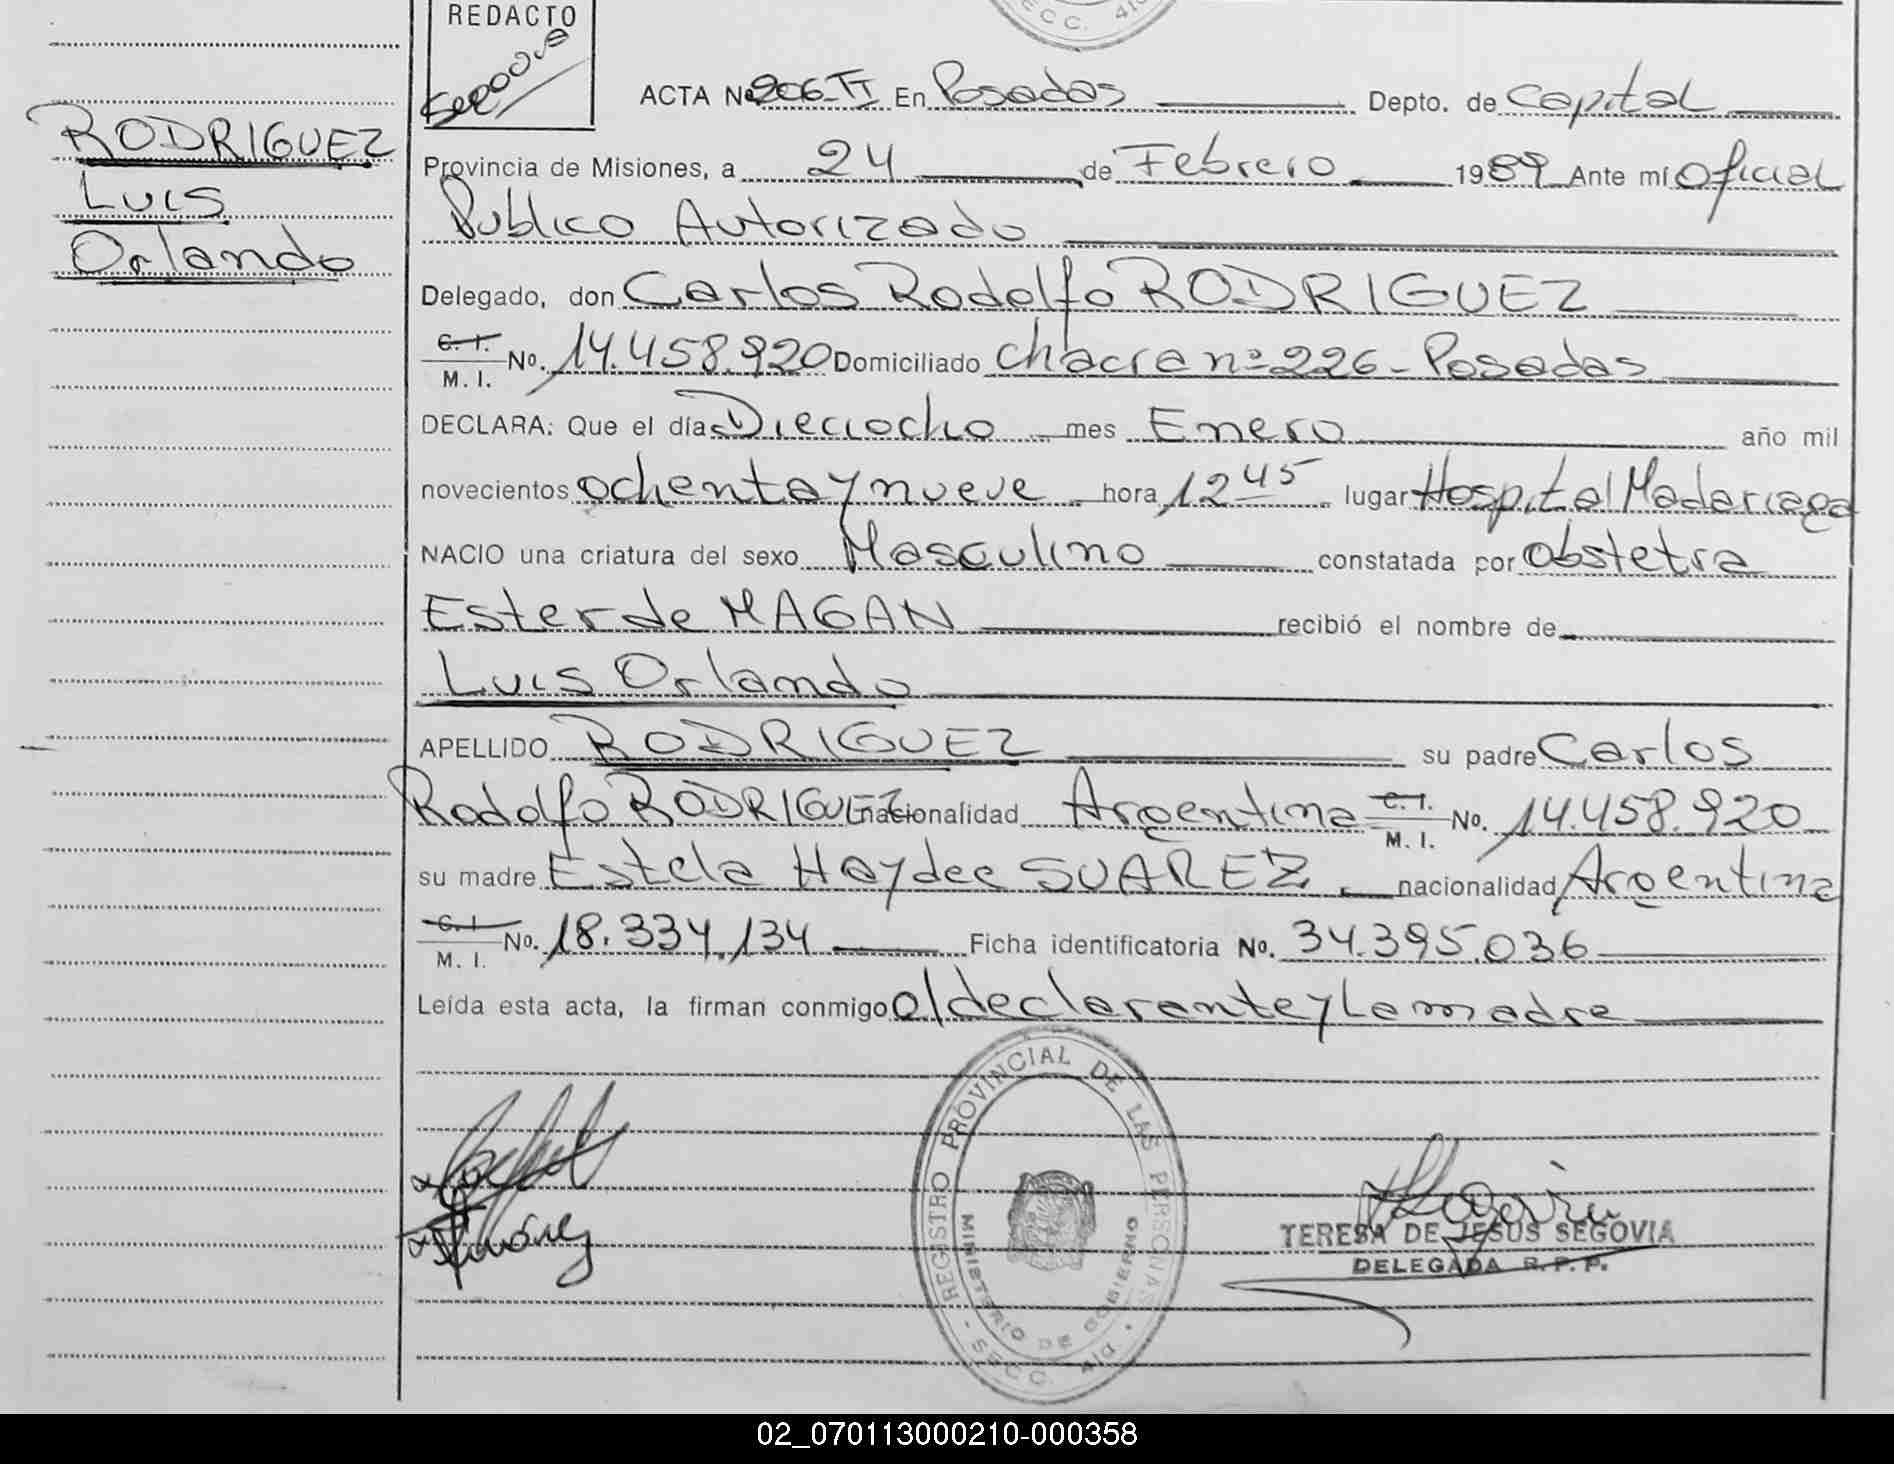 REDACTO
SECC. 4ta
ACTA Nº 206-TI En Posadas Depto. de Capital
RODRIGUEZ
Luis
Orlando
Provincia de Misiones, a 24 de Febrero 1989 Ante mí Oficial
Publico Autorizado
Delegado, don Carlos Rodolfo RODRIGUEZ
C. I.
M. I. No. 14.458.920 Domiciliado Chacra nº 226 - Posadas
DECLARA: Que el día Dieciocho mes Enero año mil
novecientos ochenta y nueve hora 12 45 lugar Hospital Madariaga
NACIO una criatura del sexo Masculino constatada por Obstetra
Ester de MAGAN recibió el nombre de
Luis Orlando
APELLIDO RODRIGUEZ su padre Carlos
Rodolfo RODRIGUEZ nacionalidad Argentina C. I. M. I. No. 14.458.920
su madre Estela Haydee SUAREZ nacionalidad Argentina
C. I.
M. I. No. 18.334.134 Ficha identificatoria No. 34.395.036
Leída esta acta, la firman conmigo el declarante y la madre
REGISTRO PROVINCIAL DE LAS PERSONAS
MINISTERIO DE GOBIERNO
SECC. 4ta
TERESA DE JESUS SEGOVIA
DELEGADA R. P. P.
02_070113000210-000358